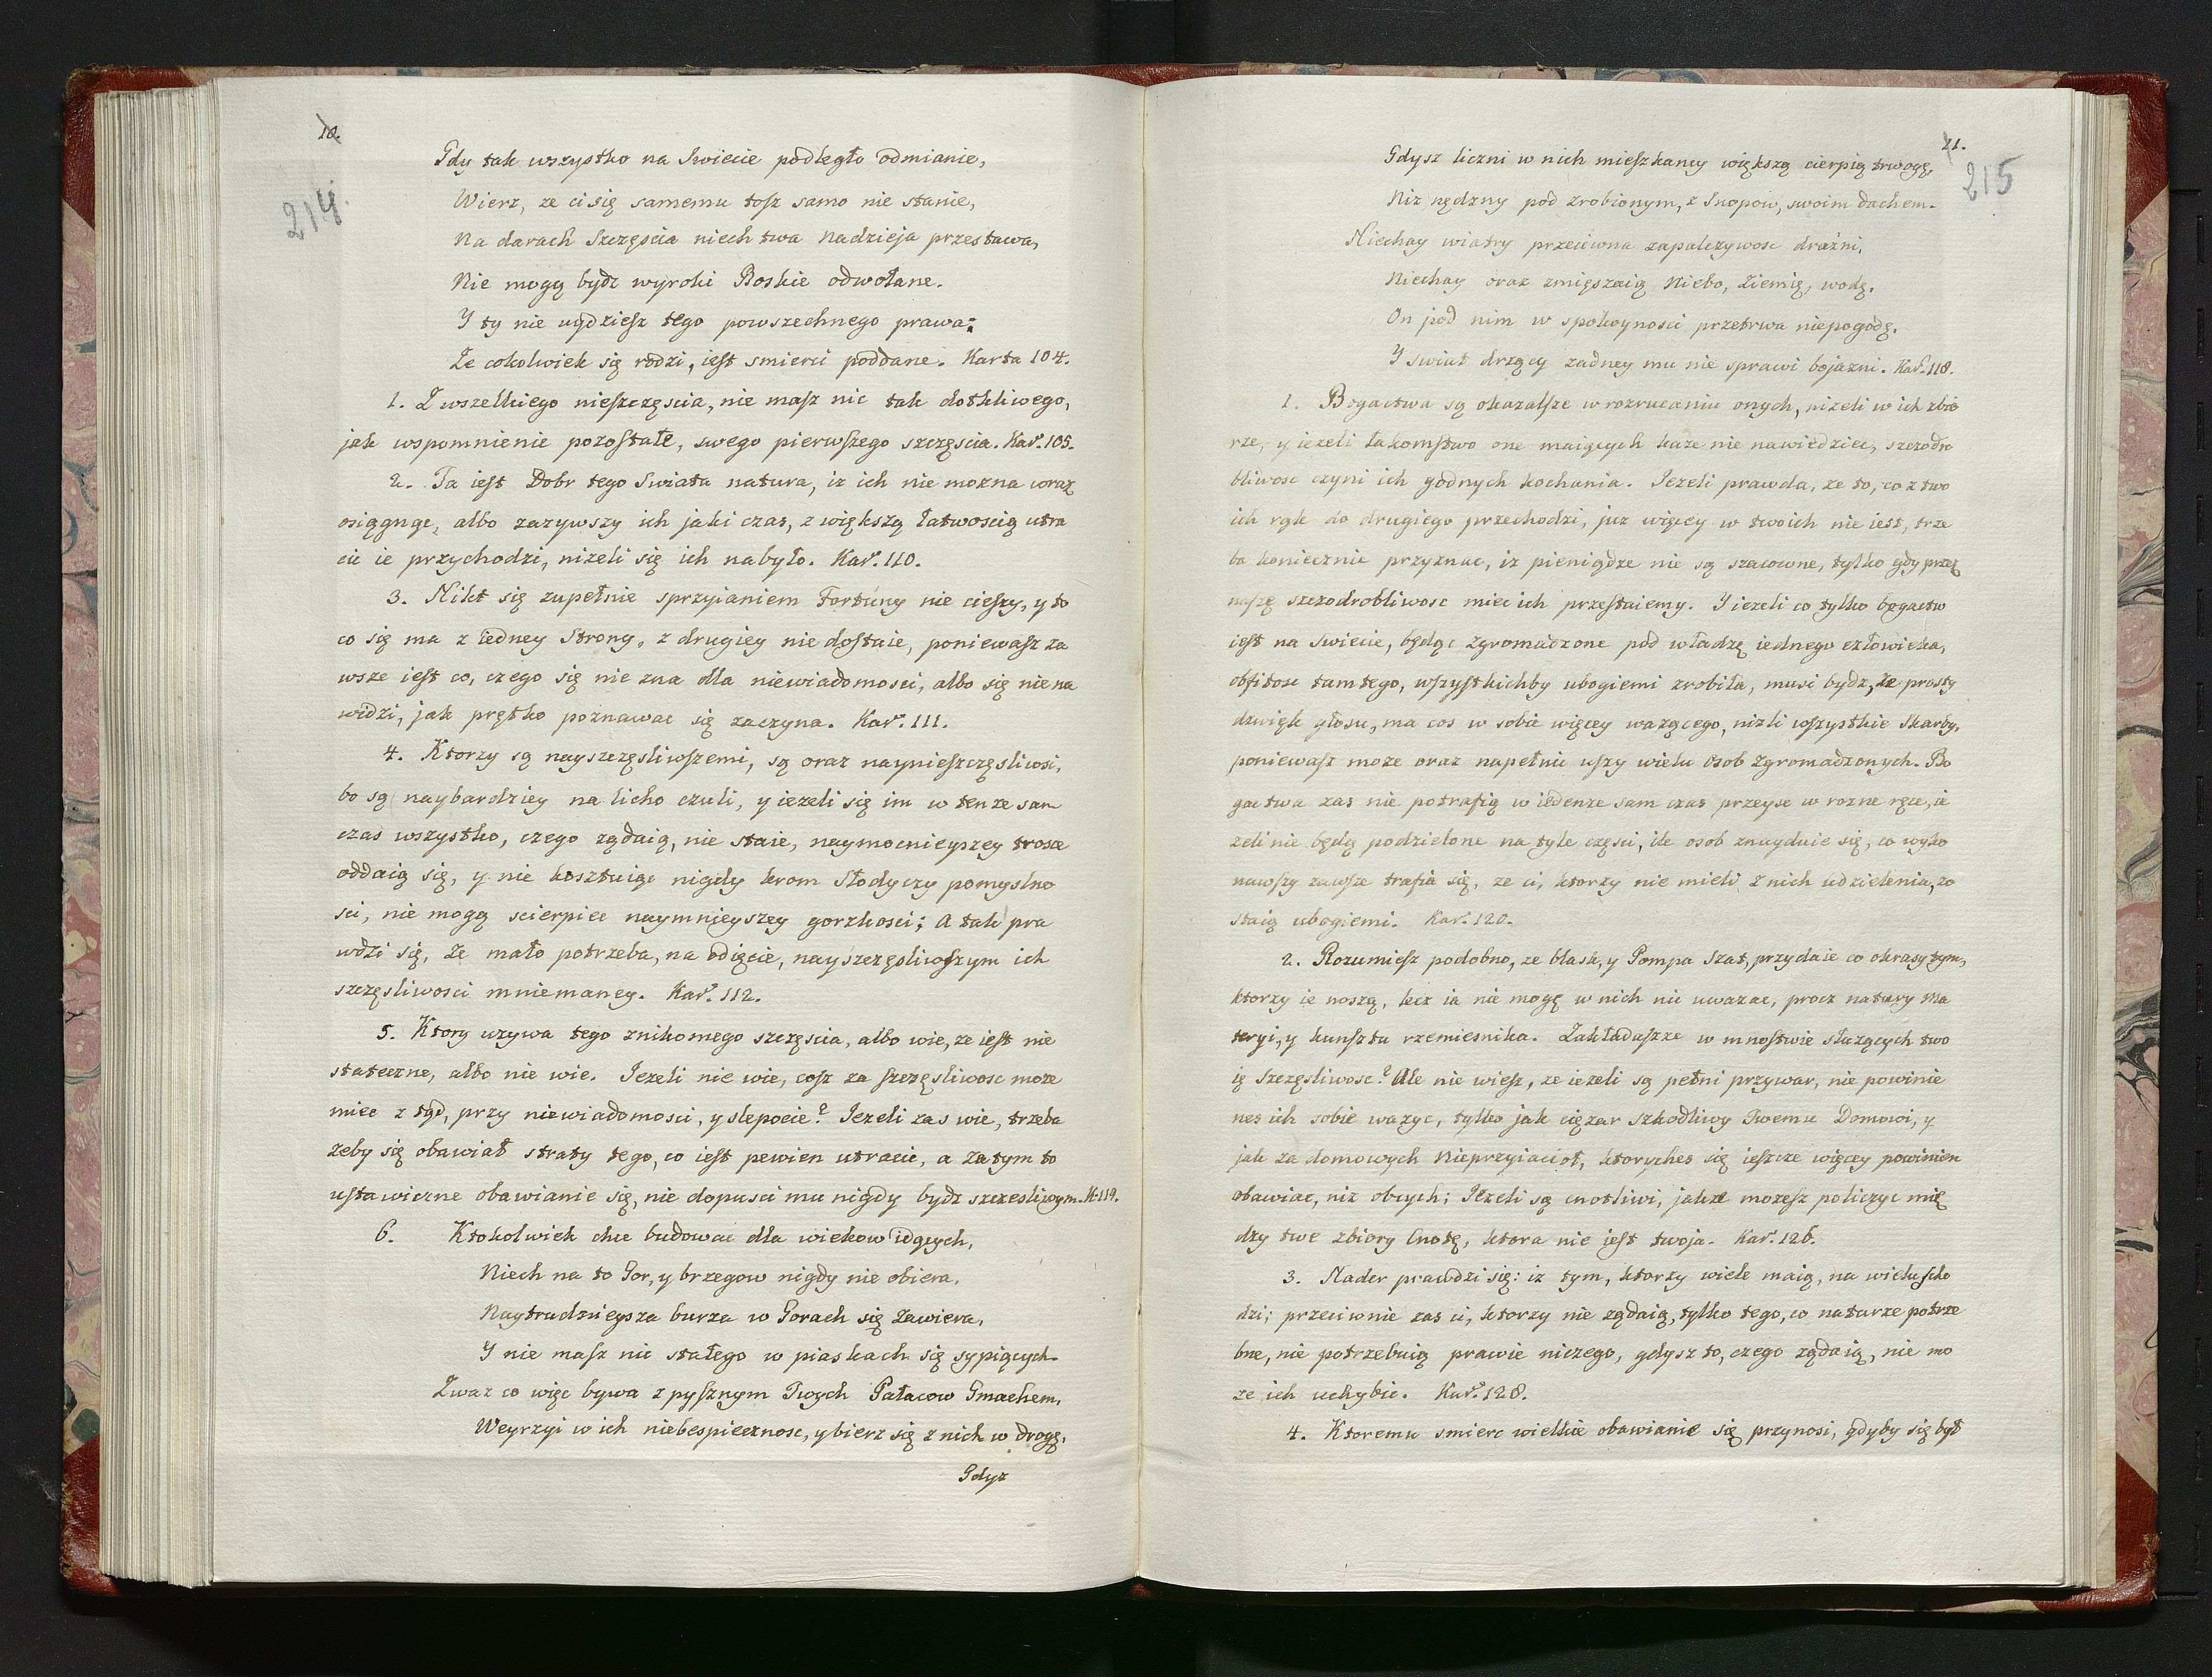 10.
214.
Gdy tak wszystko na Swiecie podległo odmianie,
Wierz, ze ci się samemu tosz samo nie stanie,
Na darach Szczęscia niech twa Nadzieja przestawa,
Nie mogą bydz wyroki Boskie odwołane.
Y ty nie uydziesz tego powszechnego prawa:
Ze cokolwiek się rodzi, iest smierci poddane. Karta 104.
1. Z wszelkiego nieszczęscia, nie masz nic tak dotkliwego,
jak wspomnienie pozostałe, swego pierwszego szczęscia. Kar. 105.
2. Ta iest Dobr tego Swiata natura, iz ich nie mozna coraz
osięgnąc, albo zazywszy ich jaki czas, z większą łatwoscią utra
cic ie przychodzi, nizeli się ich nabyło. Kar. 110.
3. Nikt się zupełnie sprzyianiem Fortuny nie cieszy, y to
co się ma z iedney Strony, z drugiey nie dostaie, poniewasz za
wsze iest co, czego się nie zna dla niewiadomosci, albo się niena
widzi, jak prętko poznawac się zaczyna. Kar. 111.
4. Ktorzy są nayszczęsliwszemi, są oraz naynieszczęsliwsi,
bo są naybardziey na licho czuli, y iezeli się im w tenze sam
czas wszystko, czego ządaią, nie staie, naymocnieyszey trosce
oddaią się, y nie kosztuiąc nigdy krom Słodyczy pomyslno
sci, nie mogą scierpiec naymnieyszey gorzkosci; A tak pra
wdzi się, Ze mało potrzeba, na odięcie, nayszczęsliwszym ich
szczęsliwosci mniemaney. Kar. 112.
5. Ktory uzywa tego znikomego szczęscia, albo wie, ze iest nie
stateczne, albo nie wie. Iezeli nie wie, cosz za szczęsliwosc moze
miec z tąd, przy niewiadomosci, y slepocie? Iezeli zas wie, trzeba
zeby się obawiał straty tego, co iest pewien utracic, a zatym to
ustawiczne obawianie się, nie dopusci mu nigdy bydz szczesliwym. K. 114.
6. Ktokolwiek chce budowac dla wiekow idących,
Niech na to Gor, y brzegow nigdy nie obiera,
Naytrudnieysza burza w Gorach się zawiera,
Y nie masz nic stałego w piaskach się sypiących
Zwaz co więc bywa z pysznym Twych Pałacow Gmachem,
Weyrzyi w ich niebespiecznosc, y bierz się z nich w drogę,
Gdyz
11.
215
Gdysz liczni w nich mieszkancy większą cierpią trwogę,
Niz nędzny pod zrobionym, z Snopow, swoim dachem.
Niechay wiatry przeciwna zapalczywosc drazni,
Niechay oraz zmięszaią Niebo, Ziemię, wodę,
On pod nim w spokoynosci przetrwa niepogodę,
Y swiat drzący zadney mu nie sprawi bojazni. Kar. 118.
1. Bogactwa są okazalsze w rozrucaniu onych, nizeli w ich zbio
rze, y iezeli łakomstwo one maiących kaze nie nawidziec, szczodro
bliwosc czyni ich godnych kochania. Iezeli prawda, ze to, co z two
ich rąk do drugiego przechodzi, juz więcy w twoich nie iest, trze
ba koniecznie przyznac, iz pieniądze nie są szacowne, tylko gdy przez
naszę szczodrobliwosc miec ich przestaiemy. Y iezeli co tylko bogactw
iest na swiecie, będąc zgromadzone pod władzę iednego człowieka,
obfitosc tamtego, wszystkichby ubogiemi zrobiła, musi bydz, ze prosty
dzwięk głosu, ma cos w sobie więcey wazącego, nizli wszystkie Skarby,
poniewasz moze oraz napełnic uszy wielu osob zgromadzonych. Bo
gactwa zas nie potrafią w iedenze sam czas przeysc w rozne ręce, ie
zeli nie będą podzielone na tyle częsci, ile osob znayduie się, co wyko
nawszy zawsze trafia się, ze ci, ktorzy nie mieli z nich udzielenia, zo
staią ubogiemi. Kar. 120.
2. Rozumiesz podobno, ze blask, y Pompa Szat, przydaie co okrasy tym,
ktorzy ie noszą, lecz ia nie mogę w nich nic uwazac, procz natury Ma
teryi, y kunsztu rzemiesnika. Zakładaszze w mnostwie słuzących two
ię Szczęsliwosc? Ale nie wiesz, ze iezeli są pełni przywar, nie powinie
nes ich sobie wazyc, tylko jak cięzar szkodliwy Twemu Domowi, y
jak za domowych Nieprzyiacioł, ktorychbes się ieszcze więcey powinien
obawiac, niz obcych; Iezeli są cnotliwi, jakze mozesz policzyc mię
dzy twe zbiory Cnotę, ktora nie iest twoja. Kar. 126.
3. Nader prawdzi się: iz tym, ktorzy wiele maią, na wielu scho
dzi; przeciwnie zas ci, ktorzy nie ządaią, tylko tego, co naturze potrze
bne, nie potrzebuią prawie niczego, gdysz to, czego ządaią, nie mo
ze ich uchybic. Kar. 128.
4. Ktoremu smierc wielkie obawianie się przynosi, gdyby się był